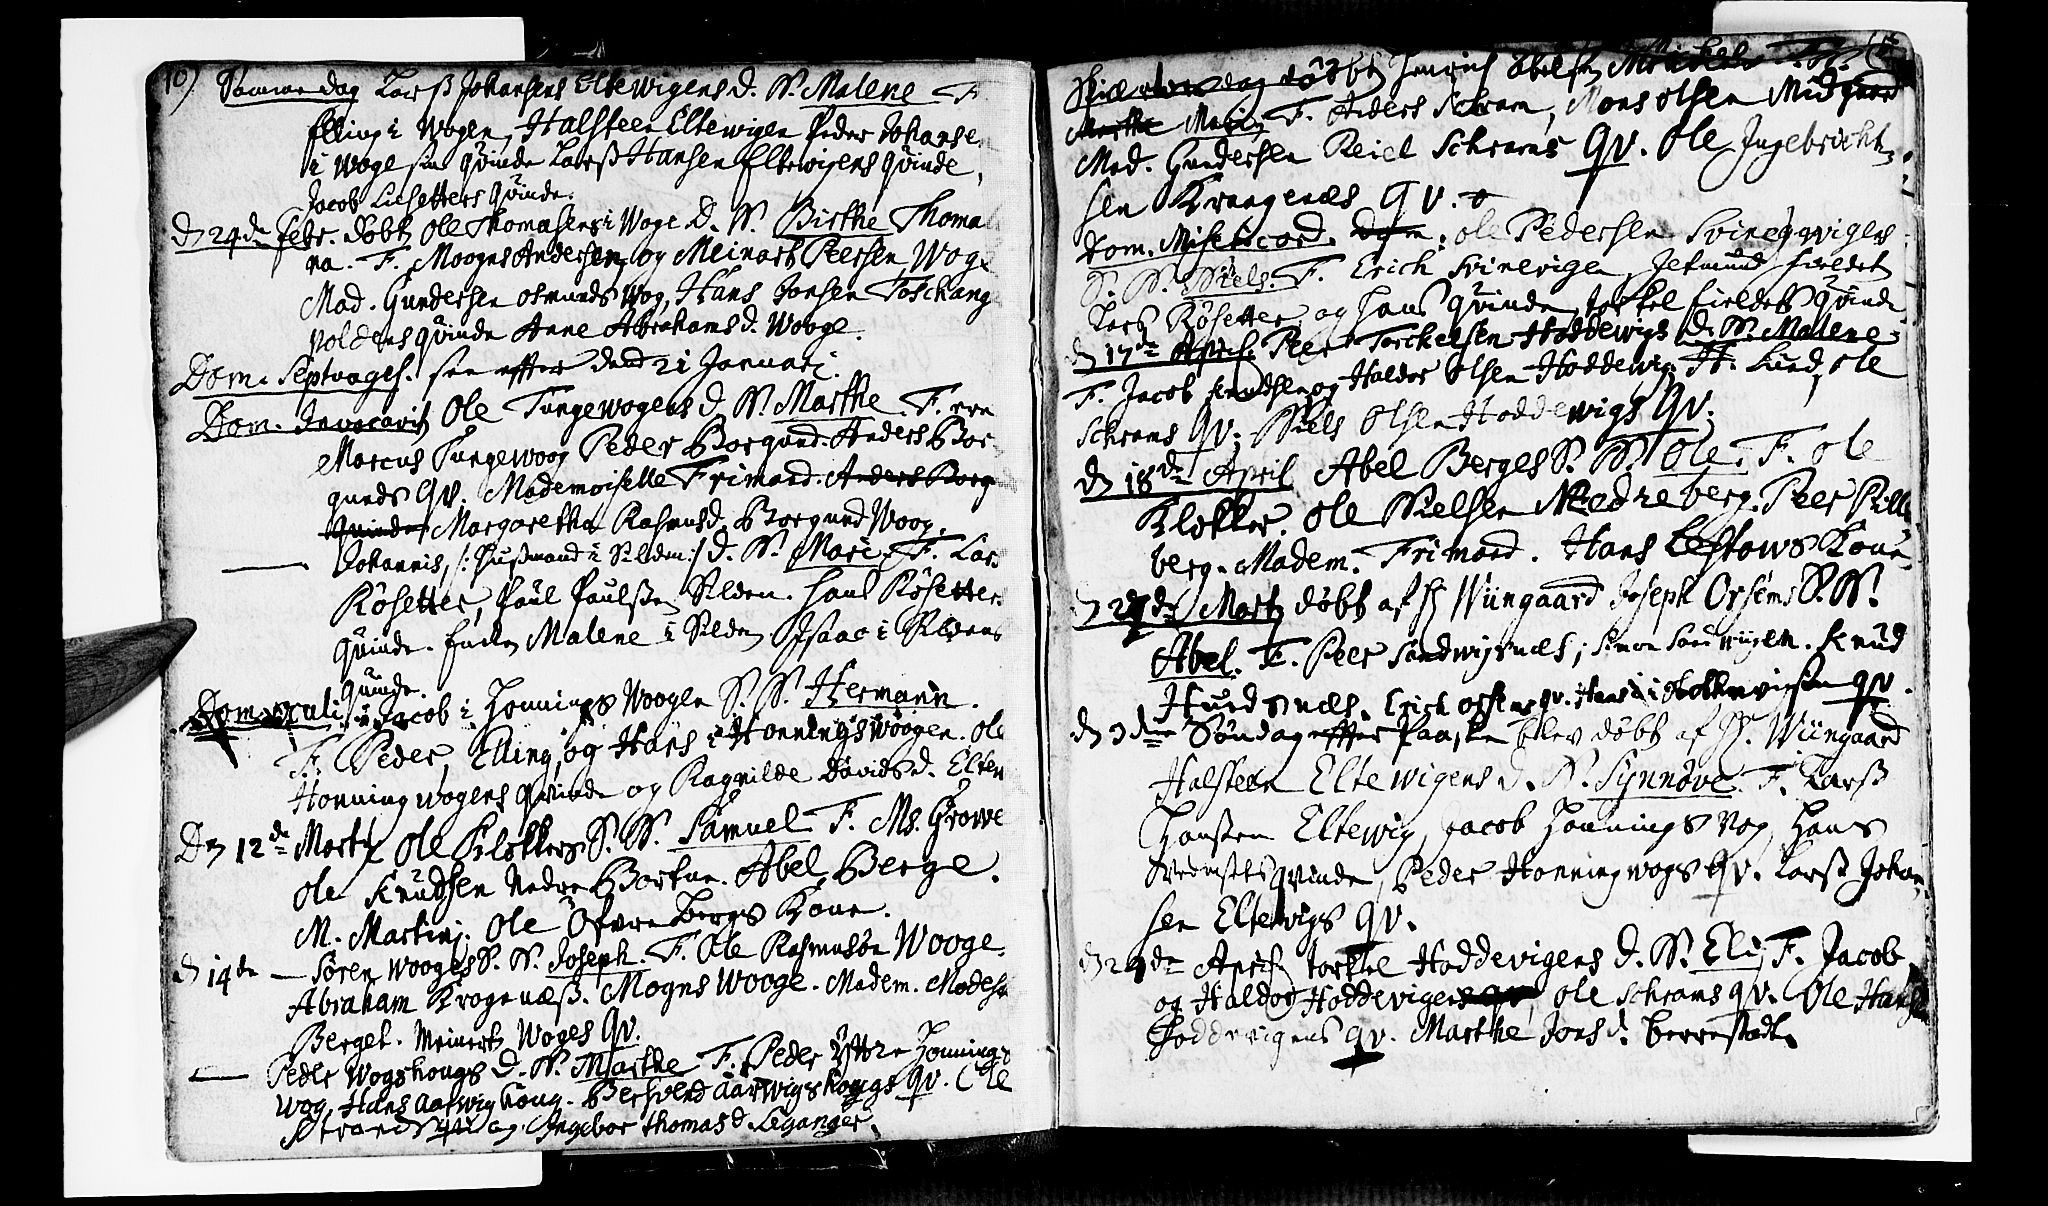 10) Samme dag Larß Johansens Eltewigens d. N. Malene F
Elling i Wogen, Halsteen Eltewigen Peder Johanse
i Woge sin Qvinde Larß Hansen Eltewigens Qvinde,
Jacob Lisetters Qvinde.
D 24de Febr. døbt Ole Thomasens i Woge D. N. Birthe Thoma
na. F. Moogns Andersen og Meinart Peersen Wog
Mad. Gundersen Osmunds Wog, Hans Jonsen Toschang
voldens Qvinde Anne Abrahams d. Wooge.
Dom. Septuages. see effter dend 21 Januari.
Dom. Invocavit Ole Tungewogens d. N. Marthe. F. ere
Marcus Tungewoog Peder Borgund. Anders Bor
gunds qv. Mademoiselle Frimand. Anders Borg
Qvinde Margaretha Rasmusd. Borgund Woog.
Johannis, /: Hußmand i Silden :/ d. N. Mari. F. Lars
Røsetter, Paul Paulßen Silden. Hans Røsetter
Qvinde. Encken Malene i Silden Isaac i Sildens
Qvinde.
Dom. Oculi Jacob i Honnings Woogen S. N. Hermann.
F. Peder, Elling, og Hans i Honningswoogen. Ole
Honningwogens Qvinde og Ragnilde Davids d. Eltew
Den 12de Marty Ole Klokkers S. N. Samuel F. Ms. Growe
Ole Knudsen Nedre Bortne. Abel Berge.
M. Martinj. Ole Øfvre Bergs Kone.
D 14de — Søren Wooges S. N. Joseph. F. Ole Rasmusøn Wooge.
Abraham Krogenæß. Mogns Wooge. Madem.
Berget. Meinert Woges qv.
— Peder Wogskougs D. N. Marthe F. Peder Yttre Honnings
wog, Hans Aarwigskoug. Aarwigskougs qv. Ole
og Ingebor Thomas d. Leganger.
døbt Henrich
Maria F. Anders Schram, Mons Olsen Midgaard
Mad. Gundersen Reiel Schrams qv. Ole Ingebricht
sen Krangenæs qv.
Dom. Misericord. Dom: Ole Pedersen Svinewigens
S. N. Niels. F. Erich Svinevigen, Jetmund Fieldet
Lars Røsetter og hans Qvinde, Fieldets Qvinde
D 17de April. Peer Torckelsen Hoddewigs D. N. Malene
F. Jacob Knudsen og Haldor Olsen Hoddewig. H. Lund, Ole
Schrams qv. Niels Olsen Hoddewigs qv.
D 18de April Abel Berges S. N. Ole. F. Ole
Klokker. Ole Nielsen Nedreberg. Peer Lille
berg. Madem. Frimand. Hans Løstows Kone
D 27de Marty døbt af Hr Wiingaard Joseph Orsems S. N.
Abel. F. Peer Sandwigsnæs, Simon Knud
Hundsnæs. Erich qv. Hans i qv.
D 3die Søndag effter Paaske blev døbt af Hr. Wiingaard
Halsteen Eltewigens d. N. Synnøve. F. Larß
Hanßen Eltewig, Jacob Honnings Vog, Hans
Qvinde, Peder Honningwogs qv. Larß Johan
sen Eltewigs qv.
D 29de April Torkel Hoddevigens d. N. Eli. F. Jacob
og Haldor Hoddevigens qv, Ole Schrams qv. Ole Hans
Hoddevigens qv. Marthe Jons d. Berrestad.